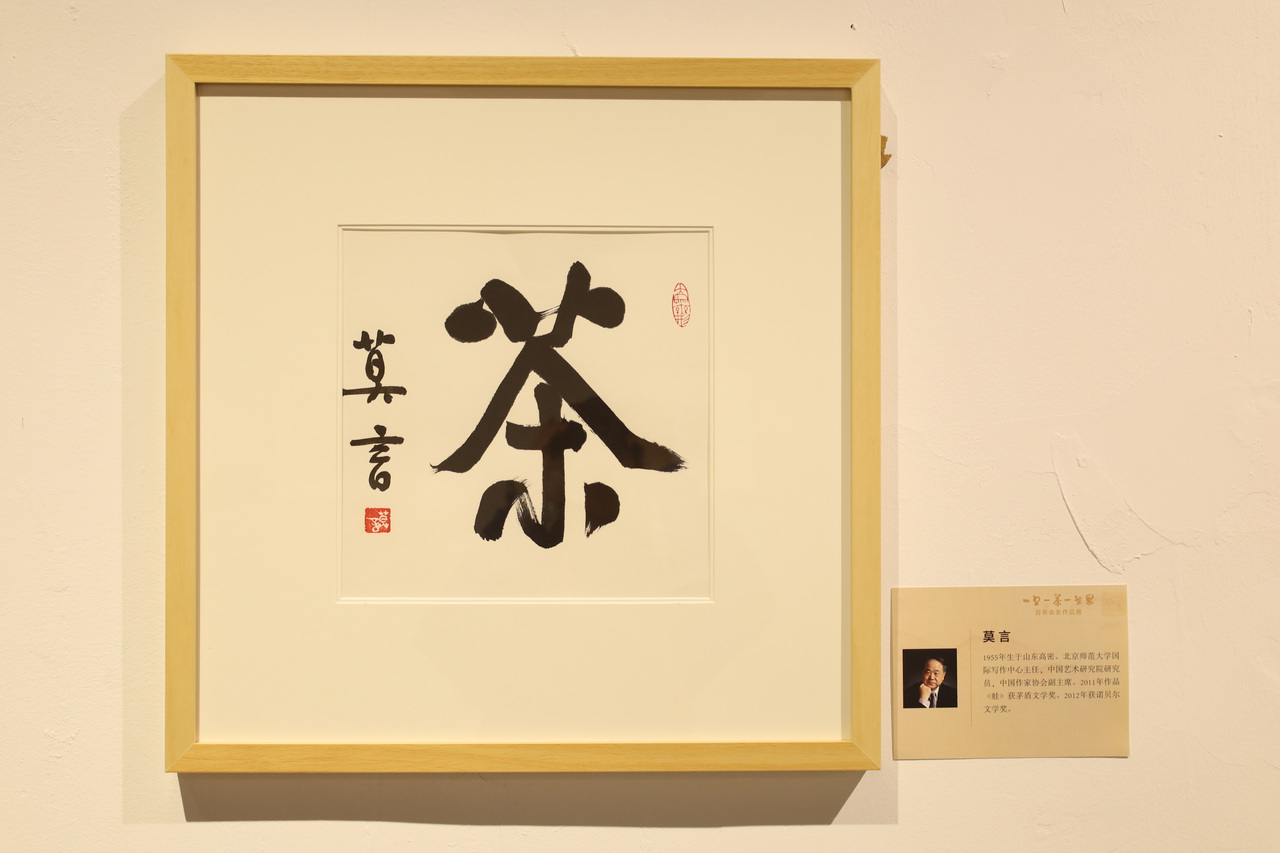 茶
莫言
莫言
1955年生于山东高密。北京师范大学国
际写作中心主任，中国艺术研究院研究
员，中国作家协会副主席。2011年作品
《蛙》获茅盾文学奖。2012年获诺贝尔
文学奖。